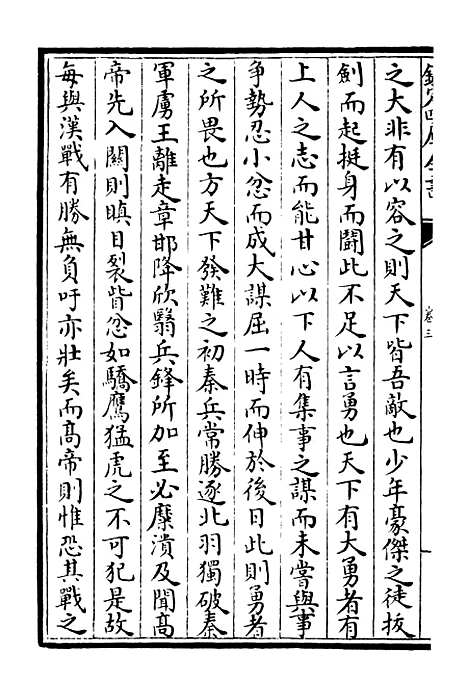 欽定四庫全書
卷三
之大非有以容之則天下皆吾敵也少年豪傑之徒拔
劍而起挺身而鬪此不足以言勇也天下有大勇者有
上人之志而能甘心以下人有集事之謀而未嘗與事
争勢忍小忿而成大謀屈一時而伸於後日此則勇者
之所畏也方天下發難之初秦兵常勝逐北羽獨破秦
軍虜王離走章邯降欣翳兵鋒所加至必糜潰及聞髙
帝先入闗則瞋目裂眥忿如驕鷹猛虎之不可犯是故
每與漢戰有勝無負吁亦壯矣而髙帝則惟恐其戰之